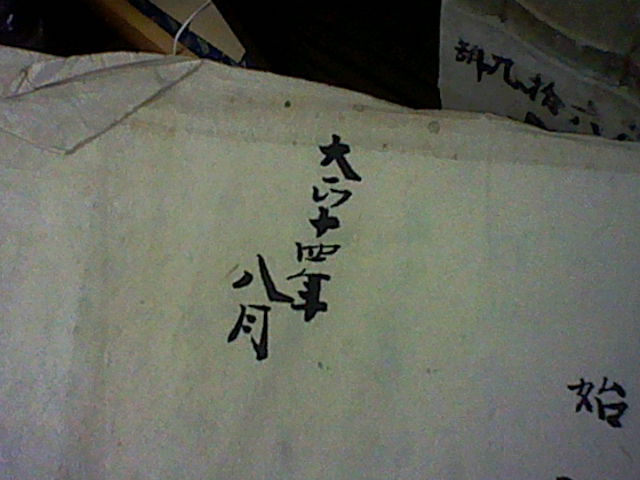 大正十四年
八月
始
九拾六